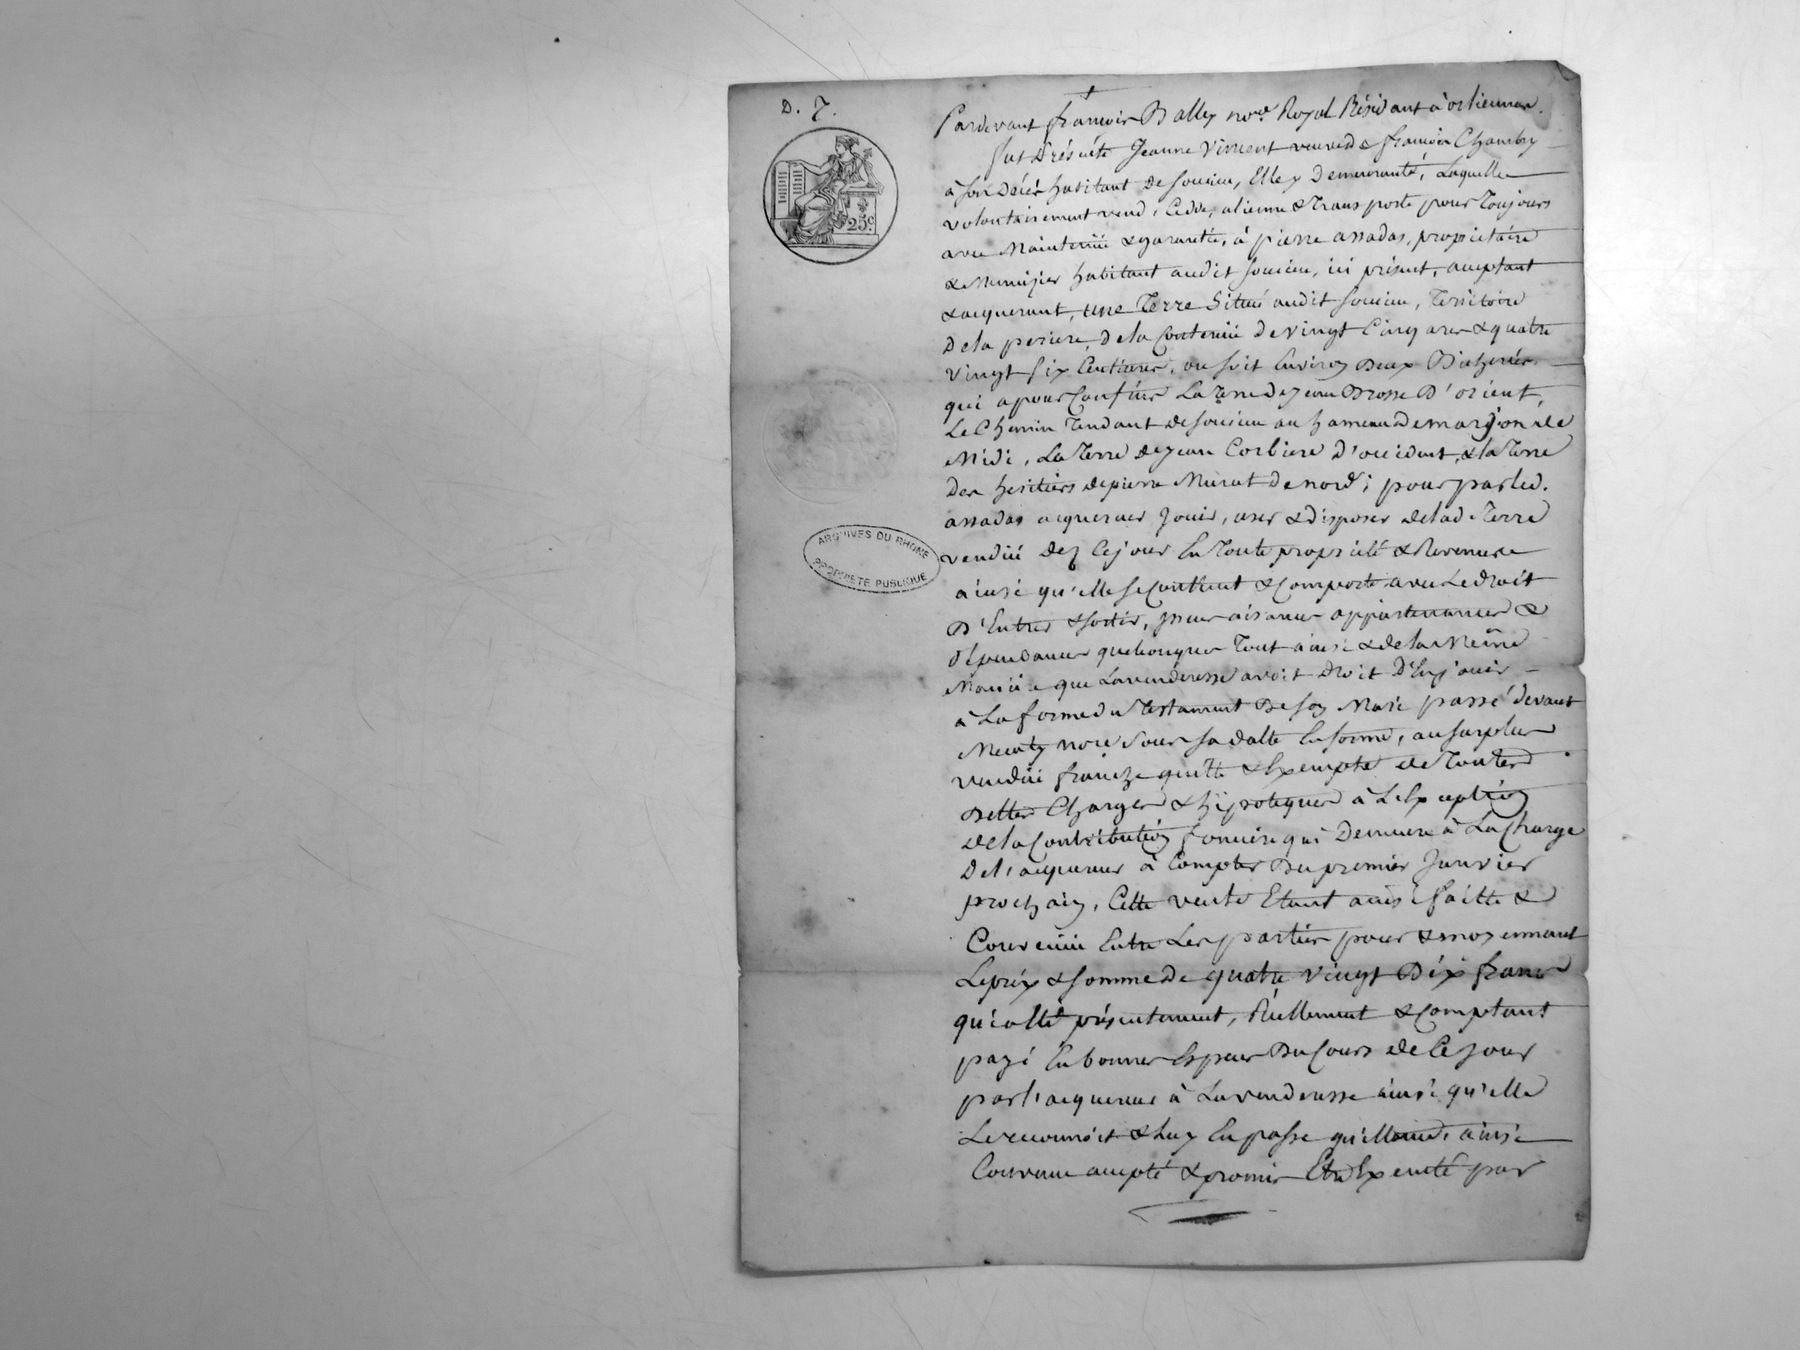 D. 7.
25c.
ARCHIVES DU RHONE
PROPRIETE PUBLIQUE
Pardevant françois Balley no.re Royal Résidant à orlienas.
fut Présente Jeanne Vincent veuve de françois Chambry
à son décès habitant de soucieu, Elle y demeurante, Laquelle
volontairement vend, Cedde, alienne & transporte pour Toujours
avec Maintenüe & garantie, à pierre assadas, propriétaire
& Menuizier habitant audit soucieu, ici présent, acceptant
& acquerant, une Terre Située audit soucieu, Territoire
De la de la Contenüe de vingt Cinq ares & quatre
vingt six Centiares, ou soit Environ Deux Bicherées
qui a pour Confins La Terre de jean Brosse D'orient,
Le Chemin Tendant de soucieu au hameau de marjon de
Midi, La Terre de jean Corbiere d'occident, & la Terre
des heritiers de pierre Murat de nord; pour par led.
assadas acquereur Jouir, user & disposer de lad Terre
vendüe dez Ce jour En Toute propriété & Revenus
ainsi qu'elle se Contient & Comporte avec Le droit
D'Entrer & sortir, ses aisances appartenances &
dépendances quelconques Tout ainsi & de la Même
Maniere que La venderesse avoit droit D'En jouir
à La forme du Testament De son Mari passé devant
no.re sous sa datte En forme, au surplus
vendüe franche quitte & Exempte de Toutes
Dettes Charges & hipoteques à L'Exception
de la Contribution fonciere qui Demeure à La Charge
De l'acquereur à Compter Du premier Janvier
prochain. Cette vente Etant ainsi faitte &
Convenüe Entre Les parties pour & moyennant
Le prix & somme de quatre vingt Dix francs
qui a été présentement, Réellement & Comptant
payé En bonnes Espèces Du Cours de Ce jour
par l'acquereur à La venderesse ainsi qu'elle
Le reconnoit & Luy En passe quittance, ainsi
Convenu accepté & promis Etre Exécuté par